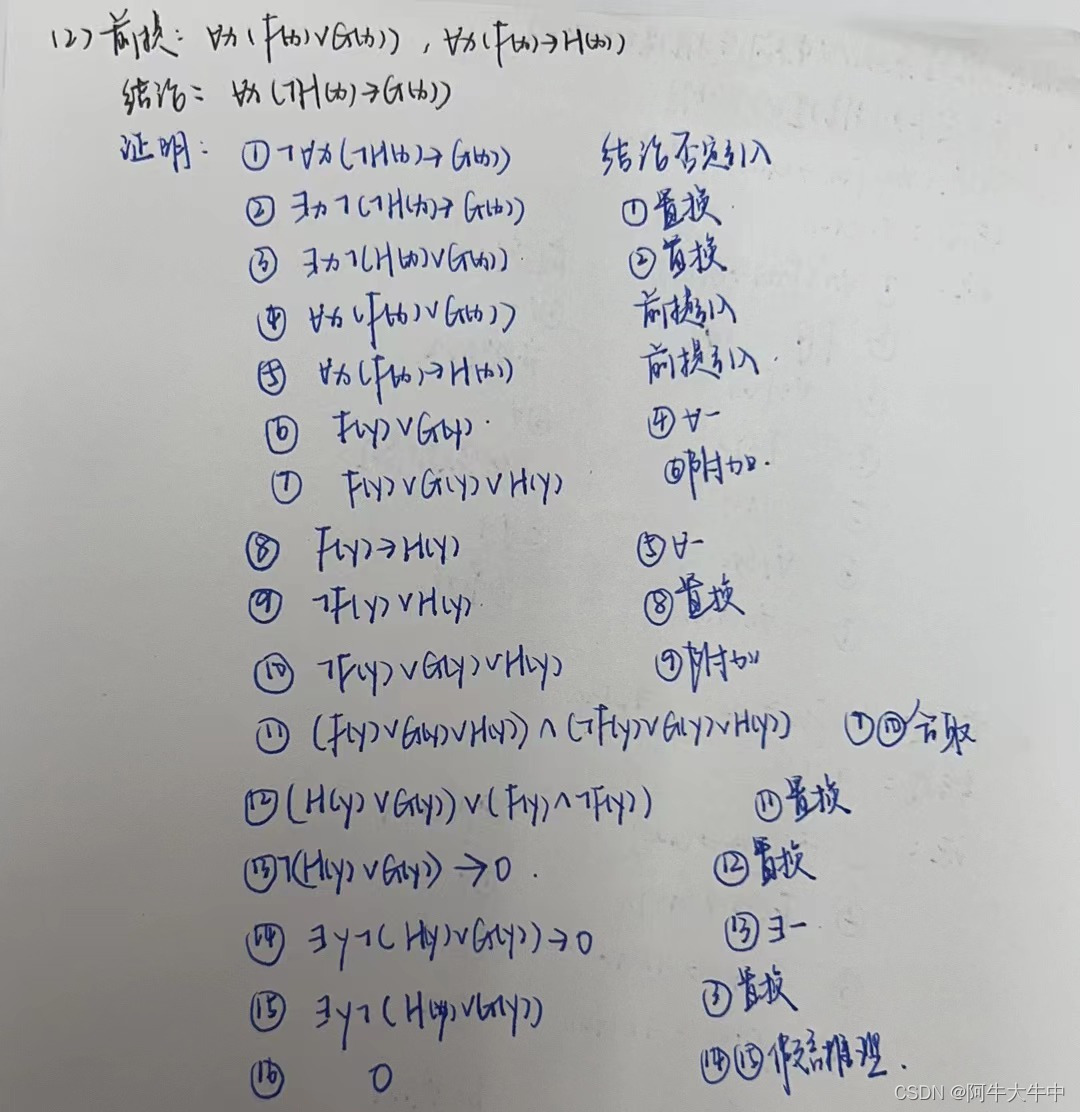 (2) 前提: ∀x(F(x)∨G(x)), ∀x(F(x)→H(x))
结论: ∀x(¬H(x)→G(x))
证明: ① ¬∀x(¬H(x)→G(x)) 结论否定引入
② ∃x¬(¬H(x)→G(x)) ①置换
③ ∃x¬(H(x)∨G(x)) ②置换
④ ∀x(F(x)∨G(x)) 前提引入
⑤ ∀x(F(x)→H(x)) 前提引入
⑥ F(y)∨G(y) ④∀-
⑦ F(y)∨G(y)∨H(y) ⑥附加.
⑧ F(y)→H(y) ⑤∀-
⑨ ¬F(y)∨H(y) ⑧置换
⑩ ¬F(y)∨G(y)∨H(y) ⑨附加
⑪ (F(y)∨G(y)∨H(y))∧(¬F(y)∨G(y)∨H(y)) ⑦⑩合取
⑫ (H(y)∨G(y))∨(F(y)∧¬F(y)) ⑪置换
⑬ ¬(H(y)∨G(y))→0. ⑫置换
⑭ ∃y¬(H(y)∨G(y))→0 ⑬∃-
⑮ ∃y¬(H(y)∨G(y)) ③置换
⑯ 0 ⑭⑮假言推理.
CSDN @阿牛大牛中